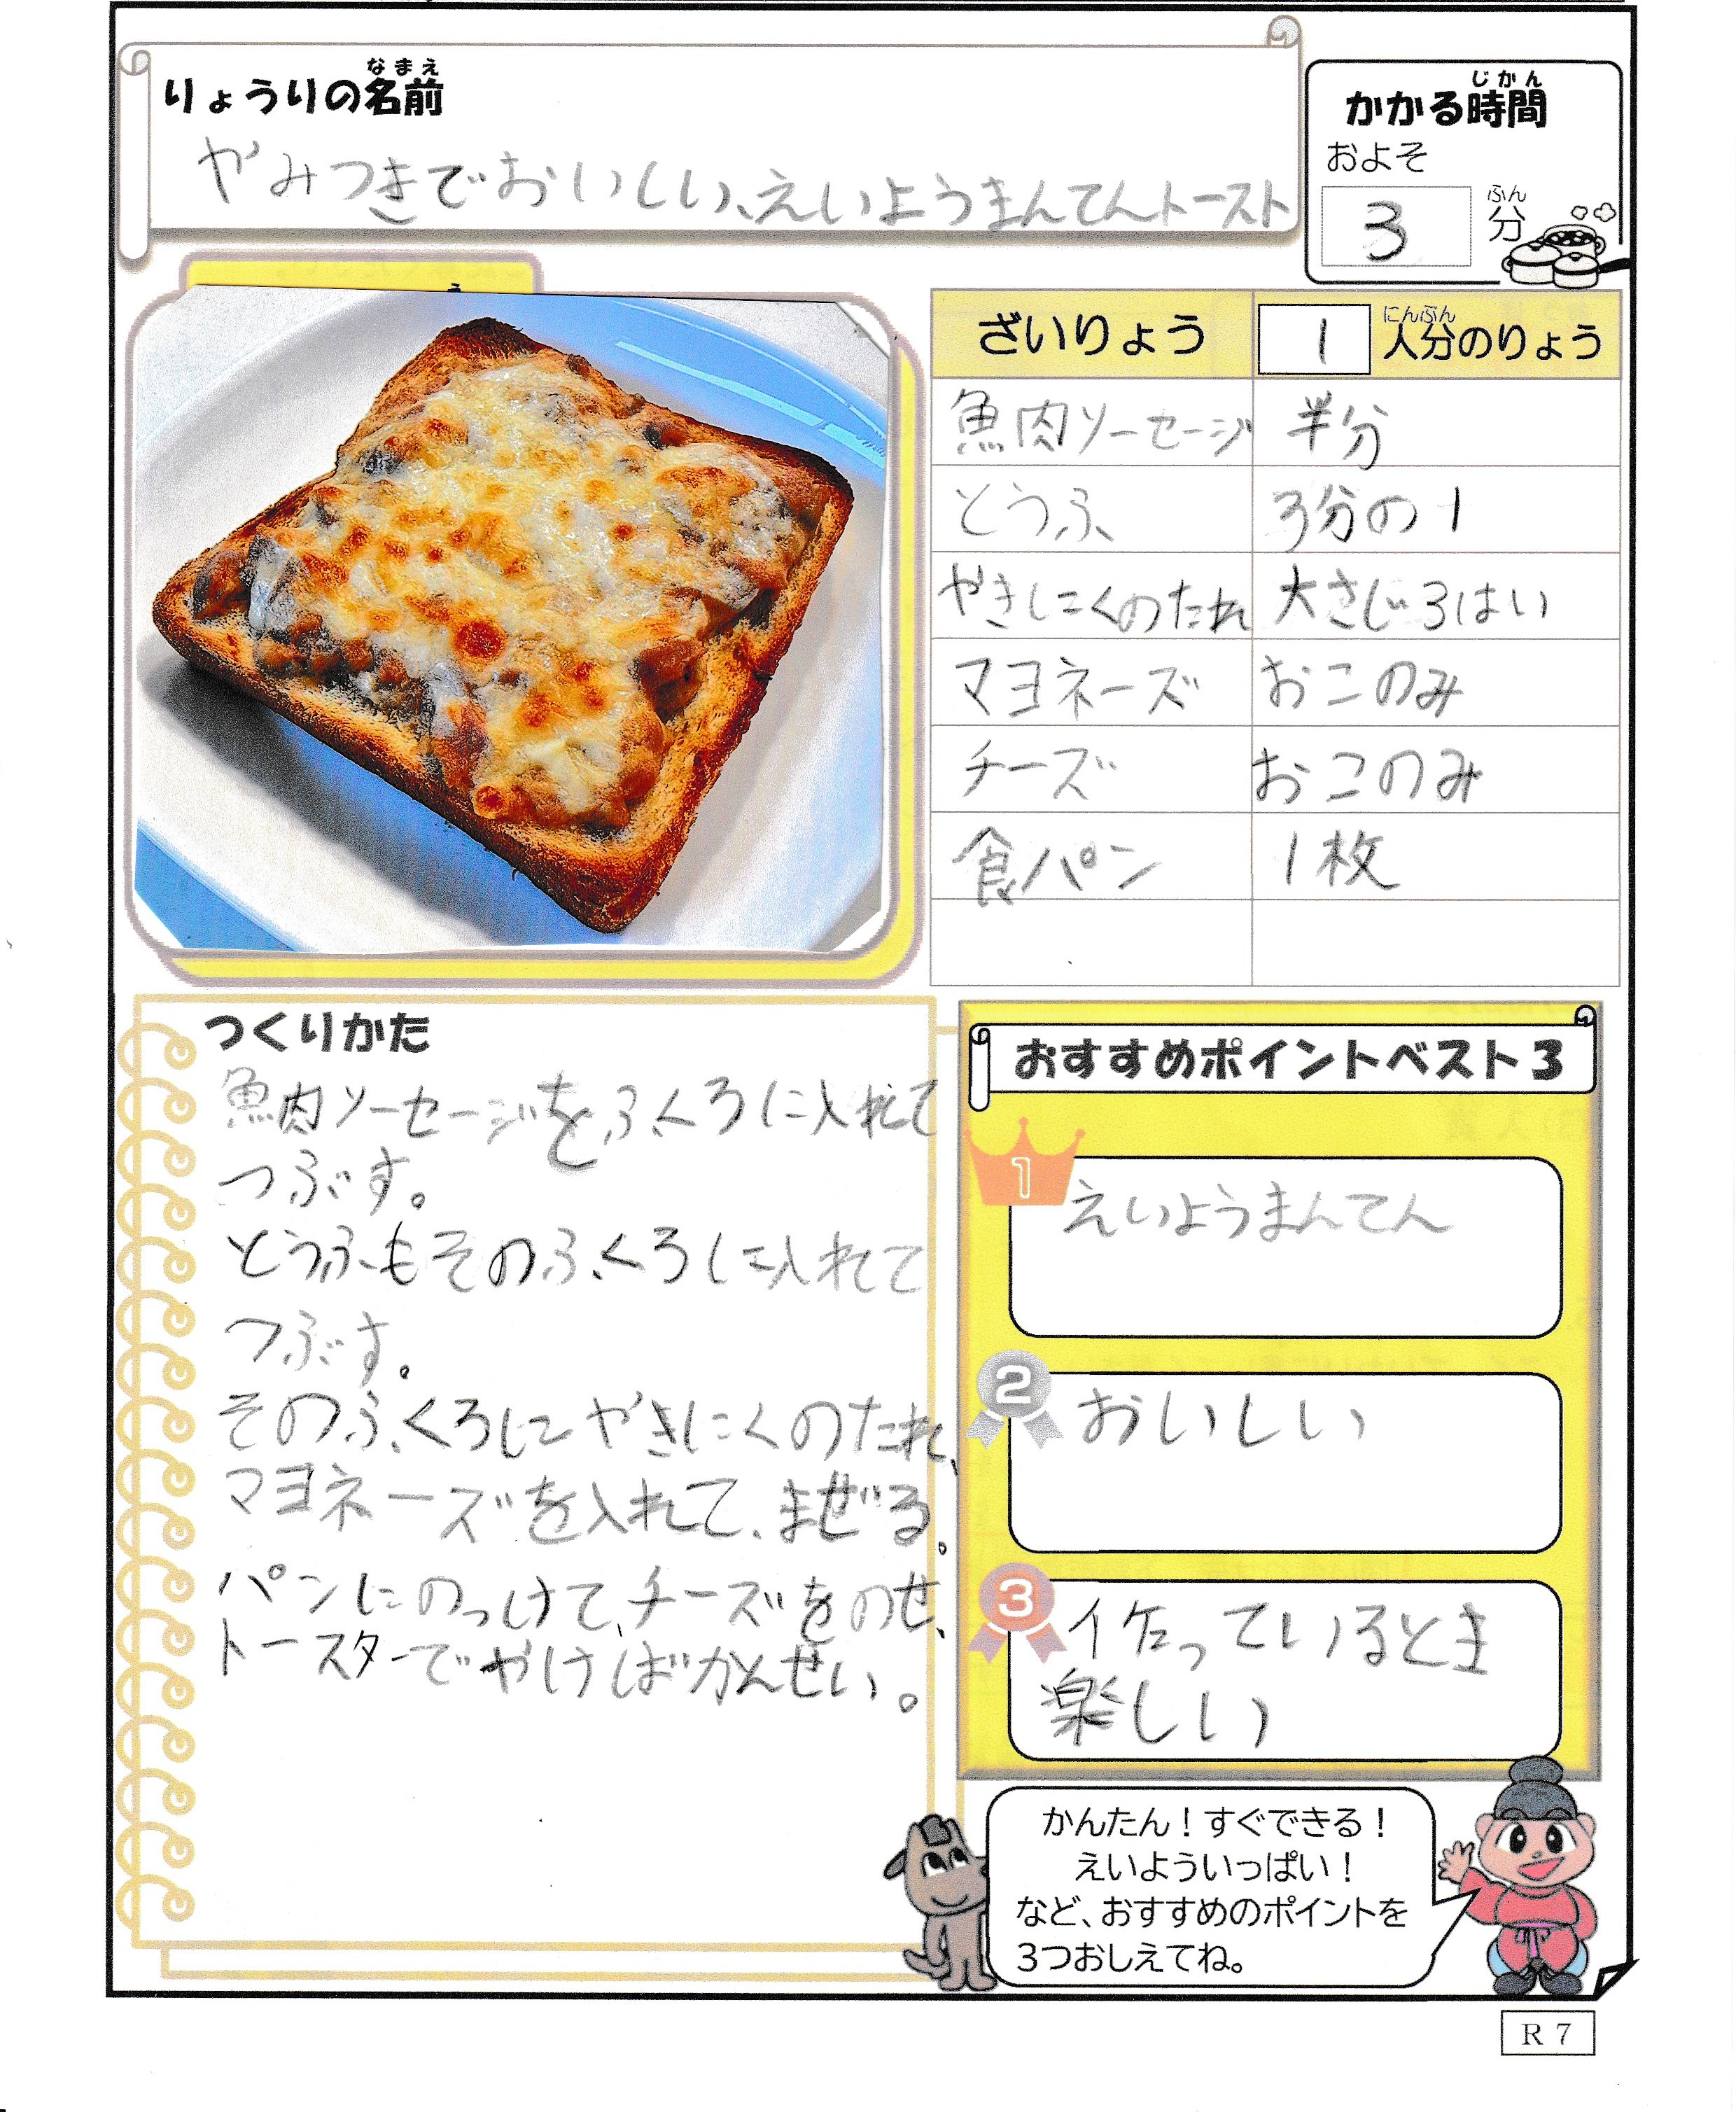 りょうりの名前
なまえ
やみつきでおいしい、えいようまんてんトースト
かかる時間
じかん
およそ
3 分
ふん
ざいりょう 1 人分のりょう
にんぶん
魚肉ソーセージ 半分
とうふ 3分の1
やきにくのたれ 大さじ3はい
マヨネーズ おこのみ
チーズ おこのみ
食パン 1枚
つくりかた
魚肉ソーセージをふくろに入れて
つぶす。
とうふもそのふくろに入れて
つぶす。
そのふくろにやきにくのたれ、
マヨネーズを入れて、まぜる。
パンにのっけて、チーズをのせ、
トースターでやけばかんせい。
おすすめポイントベスト3
1
えいようまんてん
2
おいしい
3
作っているとき
楽しい
かんたん！すぐできる！
えいよういっぱい！
など、おすすめのポイントを
3つおしえてね。
R7